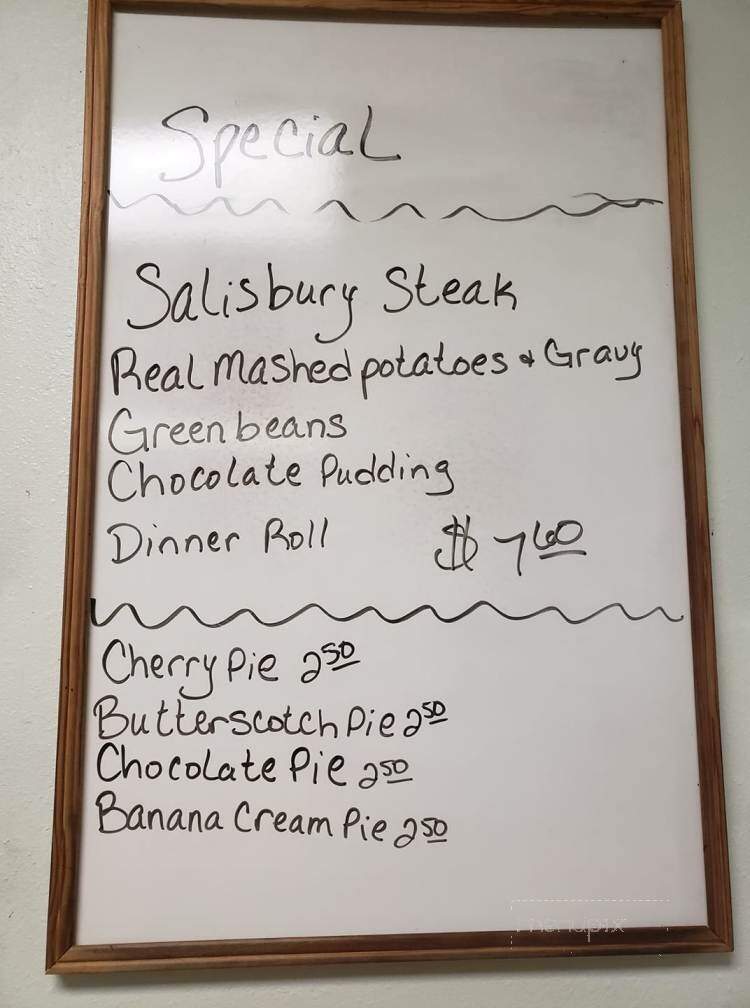 Special
Salisbury Steak
Real Mashed potatoes & Gravy
Green beans
Chocolate Pudding
Dinner Roll $ 7 60
Cherry Pie 2 50
Butterscotch Pie 2 50
Chocolate Pie 2 50
Banana Cream Pie 2 50
menupix